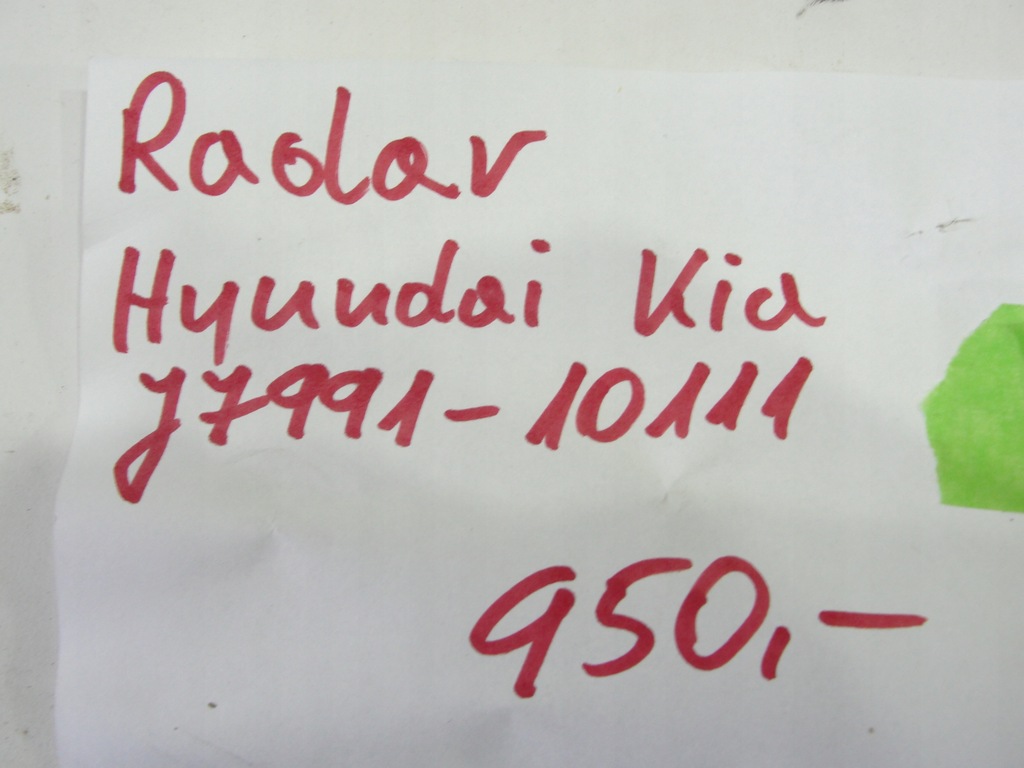 Radar
Hyundai Kia
J7991-10111
950,-